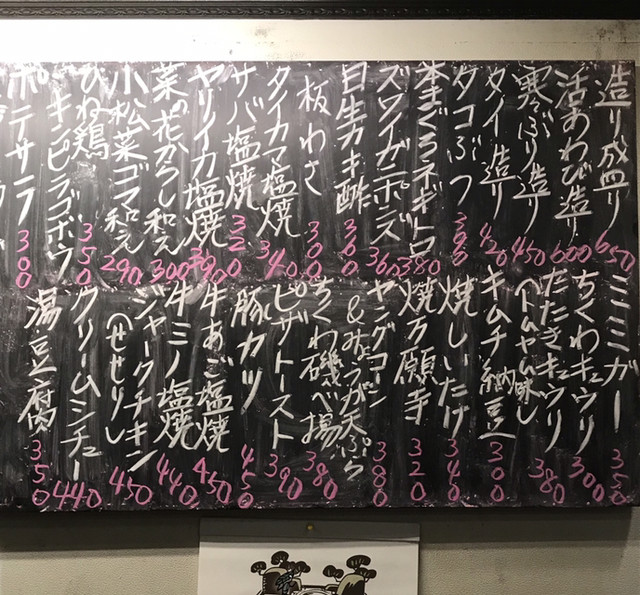 造り盛り 650
活あわび造り 600
寒ぶり造り 450
タイ造り 420
タコぶつ 390
本まぐろネギトロ 380
ズワイガニポンズ 360
目生カキ酢 360
板わさ 300
タイカマ塩焼 340
サバ塩焼 320
ヤリイカ塩焼 390
菜の花からし和え 300
小松菜ゴマ和え 290
ひね鶏 350
キンピラゴボウ
ポテサラ 300
ミミガー 350
ちくわキュウリ 300
たたきキュウリ
380
キムチ納豆 300
焼しいたけ 340
焼万願寺 320
ヤングコーン
&みょうが天ぷら 380
ちくわ磯べ揚 380
ピザトースト 390
豚カツ 450
牛あご塩焼 450
牛ミノ塩焼 440
ジャークチキン
(せせり) 450
クリームシチュー 440
湯豆腐 350